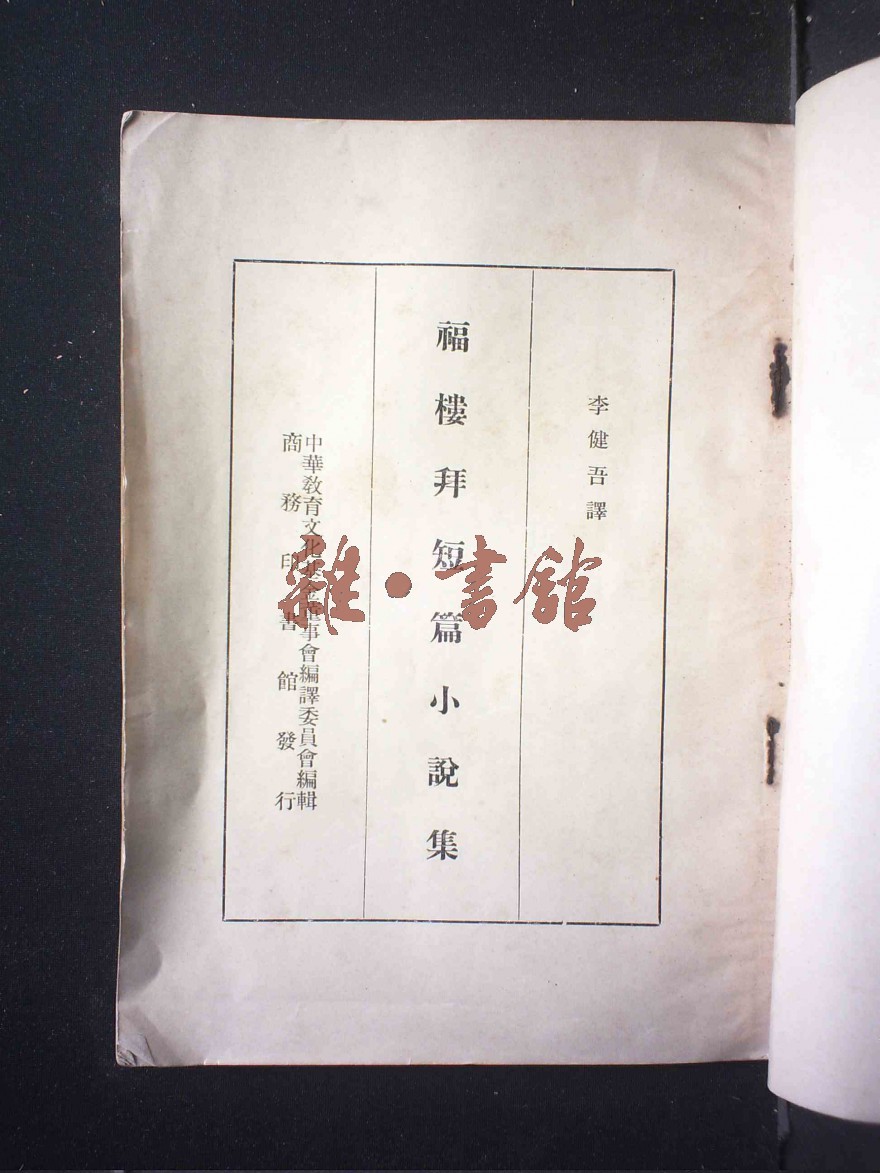 李健吾譯
福樓拜短篇小說集
中華教育文化基金董事會編譯委員會編輯
商務印書館發行
雜·書館